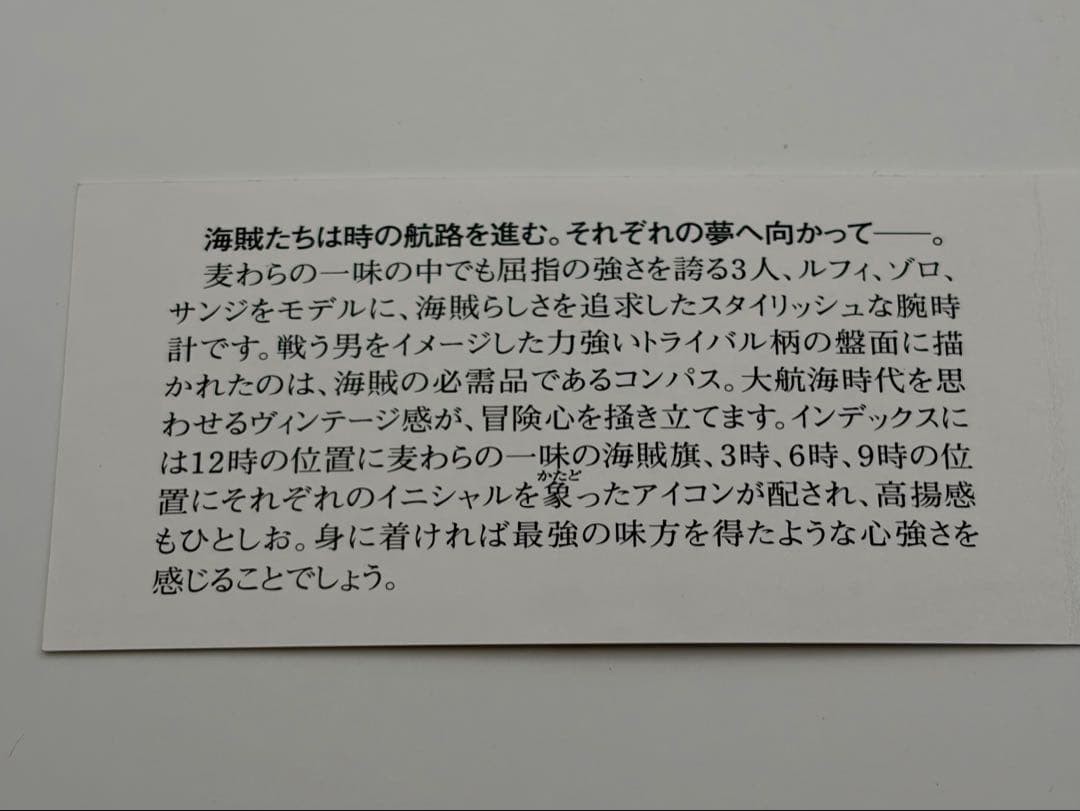 海賊たちは時の航路を進む。それぞれの夢へ向かって——。
麦わらの一味の中でも屈指の強さを誇る3人、ルフィ、ゾロ、
サンジをモデルに、海賊らしさを追求したスタイリッシュな腕時
計です。戦う男をイメージした力強いトライバル柄の盤面に描
かれたのは、海賊の必需品であるコンパス。大航海時代を思
わせるヴィンテージ感が、冒険心を掻き立てます。インデックスに
は12時の位置に麦わらの一味の海賊旗、3時、6時、9時の位
かたど
置にそれぞれのイニシャルを象ったアイコンが配され、高揚感
もひとしお。身に着ければ最強の味方を得たような心強さを
感じることでしょう。